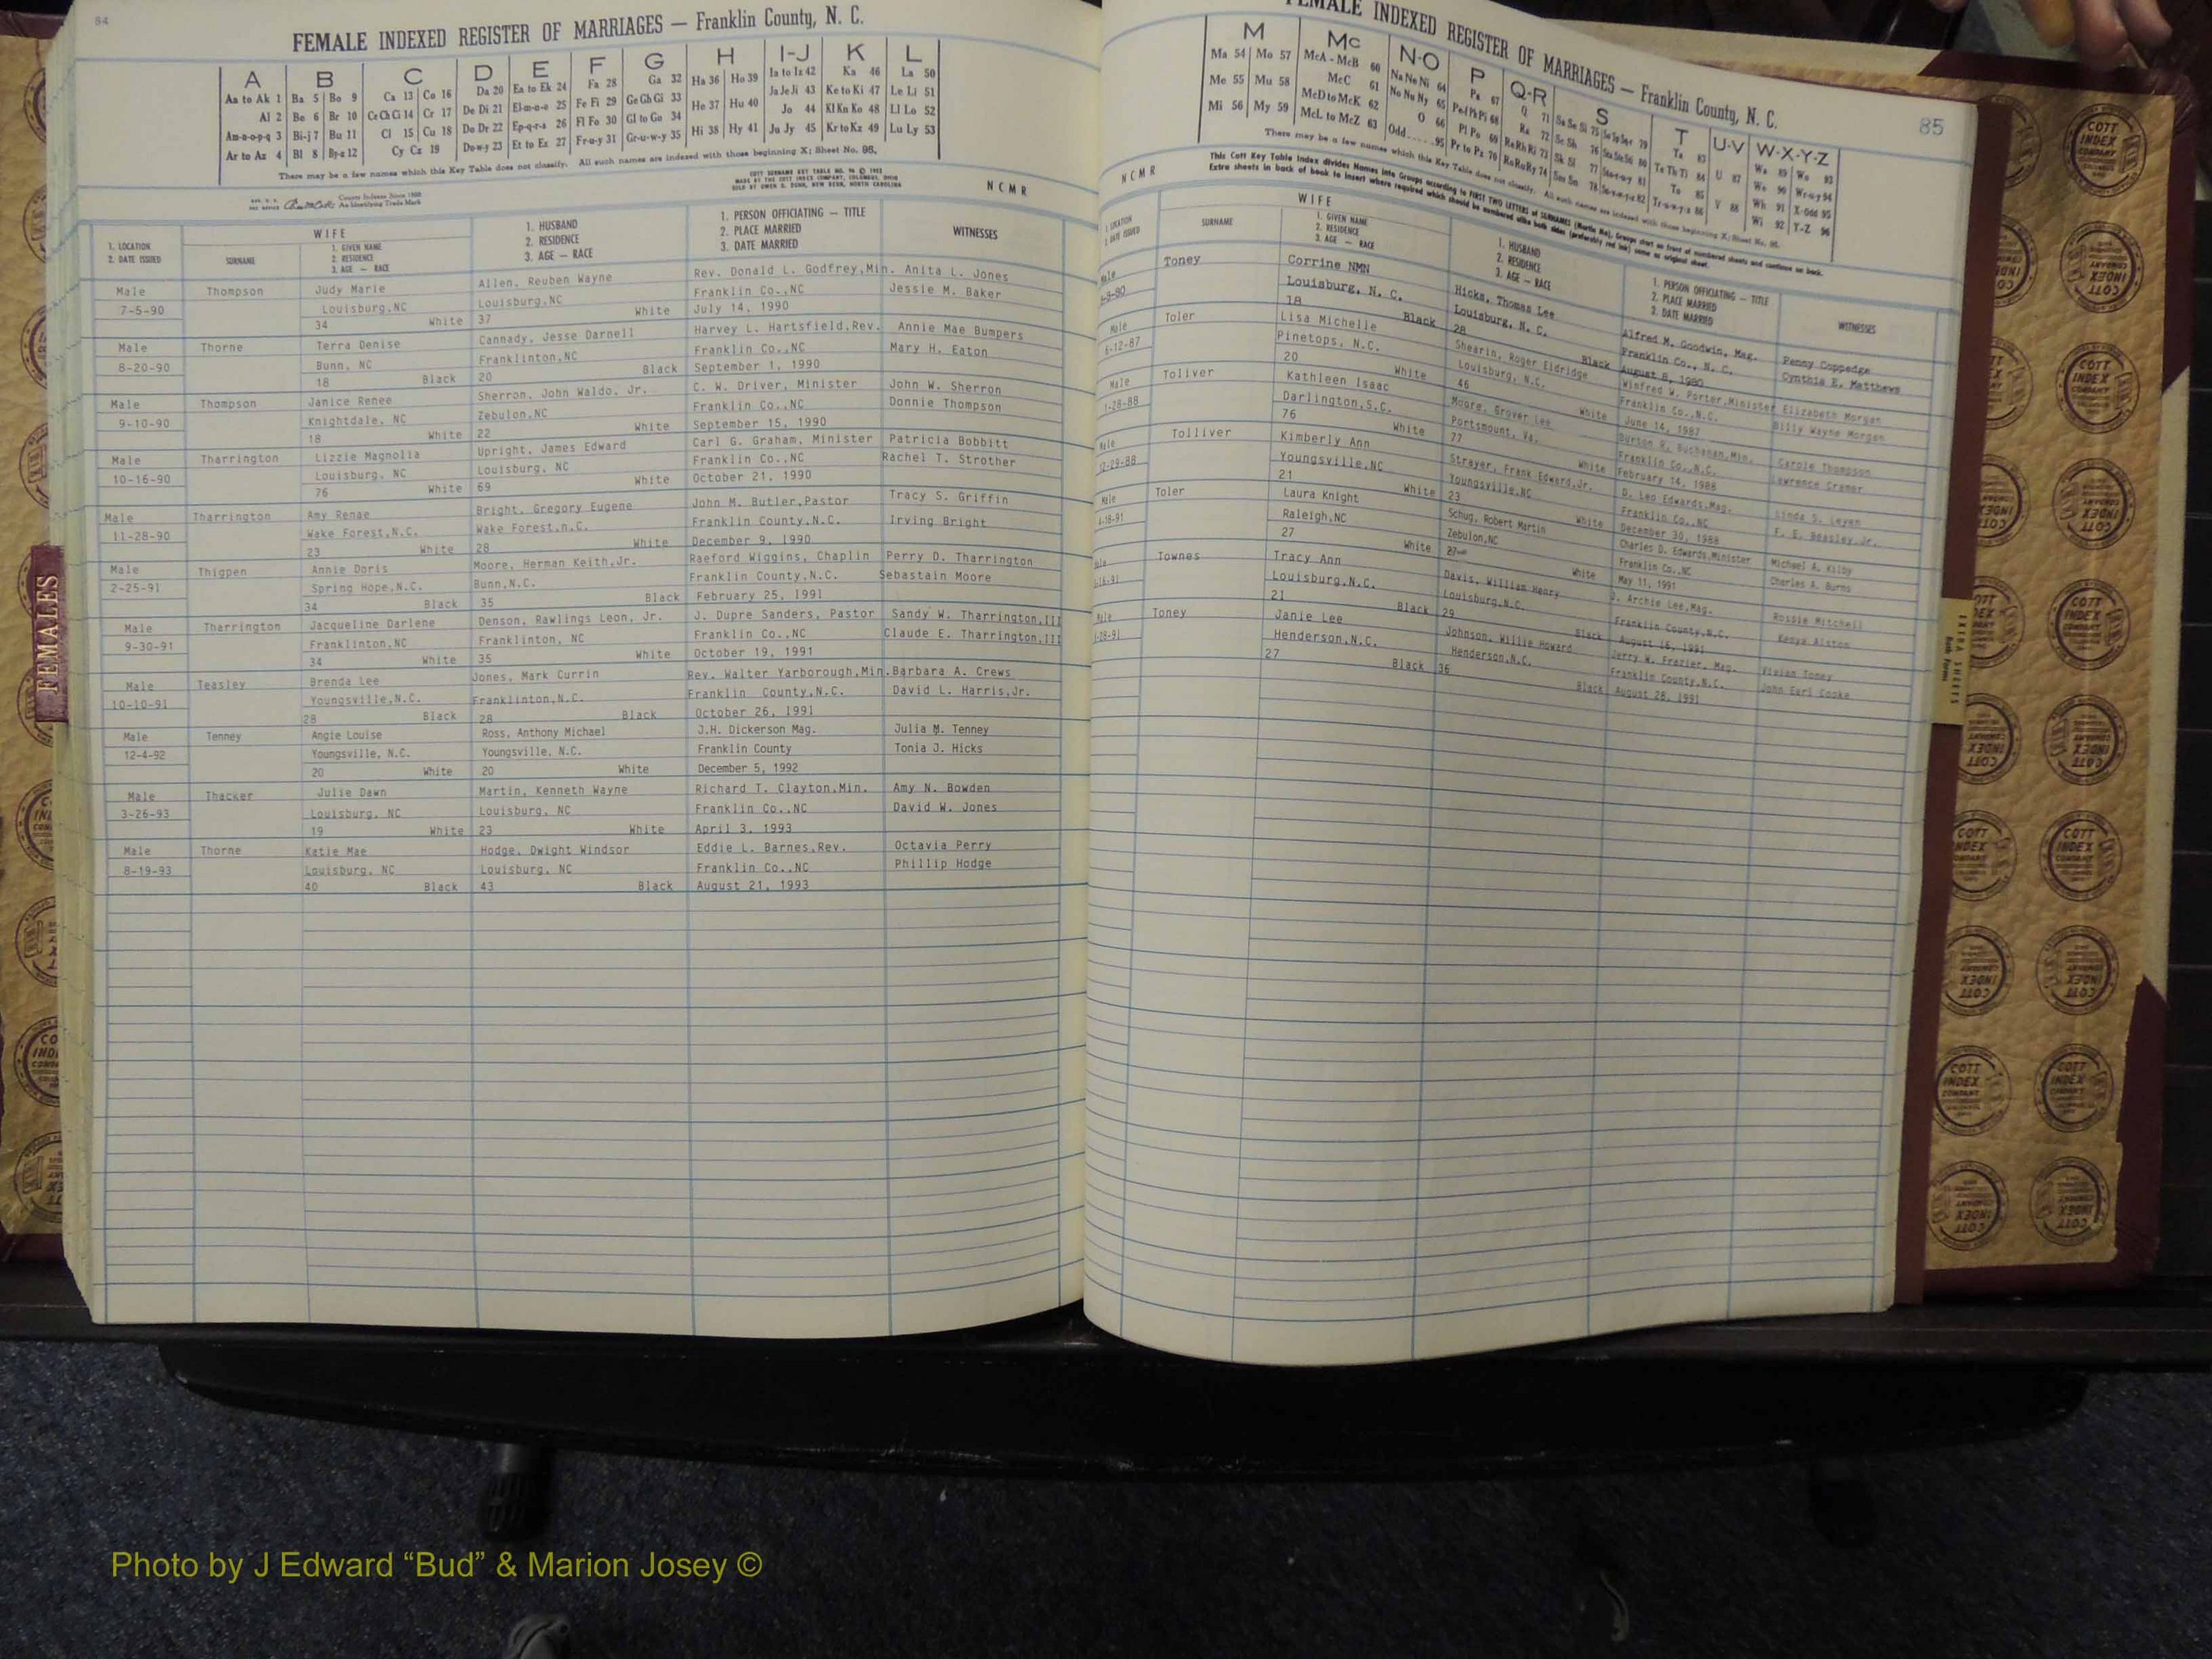 84
FEMALE INDEXED REGISTER OF MARRIAGES — Franklin County, N. C.
A B C D E F G H I-J K L
Aa to Ak 1 Ba 5 Bo 9 Ca 13 Co 16 Da 20 Ea to Ek 24 Fa 28 Ga 32 Ha 36 Ho 39 Ia to Iz 42 Ka 46 La 50
Al 2 Be 6 Br 10 Ce Ch Ci 14 Cr 17 De Di 21 El-m-n-o 25 Fe Fi 29 Ge Gh Gi 33 He 37 Hu 40 Ja Je Ji 43 Ke to Ki 47 Le Li 51
Am-n-o-p-q 3 Bi-j 7 Bu 11 Cl 15 Cu 18 Do Dr 22 Ep-q-r-s 26 Fl Fo 30 Gl to Go 34 Hi 38 Hy 41 Jo 44 Kl Kn Ko 48 Ll Lo 52
Ar to Az 4 Bl 8 By-z 12 Cy Cz 19 Du-w-y 23 Et to Ez 27 Fr-u-y 31 Gr-u-w-y 35 Ju Jy 45 Kr to Kz 49 Lu Ly 53
There may be a few names which this Key Table does not classify. All such names are indexed with those beginning X; Sheet No. 95.
COTT SURNAME KEY TABLE NO. 96
MADE BY THE COTT INDEX COMPANY, COLUMBUS, OHIO
SOLD BY OWEN G. DUNN, NEW BERN, NORTH CAROLINA
County Indexes Since 1888
An Identifying Trade Mark
N C M R
1. LOCATION
2. DATE ISSUED
WIFE
SURNAME
1. GIVEN NAME
2. RESIDENCE
3. AGE — RACE
1. HUSBAND
2. RESIDENCE
3. AGE — RACE
1. PERSON OFFICIATING — TITLE
2. PLACE MARRIED
3. DATE MARRIED
WITNESSES
Male Thompson Judy Marie Allen, Reuben Wayne Rev. Donald L. Godfrey,Min. Anita L. Jones
7-5-90 Louisburg,NC Louisburg,NC Franklin Co.,NC Jessie M. Baker
34 White 37 White July 14, 1990
Male Thorne Terra Denise Cannady, Jesse Darnell Harvey L. Hartsfield,Rev. Annie Mae Bumpers
8-20-90 Bunn, NC Franklinton,NC Franklin Co.,NC Mary H. Eaton
18 Black 20 Black September 1, 1990
Male Thompson Janice Renee Sherron, John Waldo, Jr. C. W. Driver, Minister John W. Sherron
9-10-90 Knightdale, NC Zebulon,NC Franklin Co.,NC Donnie Thompson
18 White 22 White September 15, 1990
Male Tharrington Lizzie Magnolia Upright, James Edward Carl G. Graham, Minister Patricia Bobbitt
10-16-90 Louisburg, NC Louisburg, NC Franklin Co.,NC Rachel T. Strother
76 White 69 White October 21, 1990
Male Tharrington Amy Renae Bright, Gregory Eugene John M. Butler,Pastor Tracy S. Griffin
11-28-90 Wake Forest,N.C. Wake Forest,n.C. Franklin County,N.C. Irving Bright
23 White 28 White December 9, 1990
Male Thigpen Annie Doris Moore, Herman Keith,Jr. Raeford Wiggins, Chaplin Perry D. Tharrington
2-25-91 Spring Hope,N.C. Bunn,N.C. Franklin County,N.C. Sebastain Moore
34 Black 35 Black February 25, 1991
Male Tharrington Jacqueline Darlene Denson, Rawlings Leon, Jr. J. Dupre Sanders, Pastor Sandy W. Tharrington,III
9-30-91 Franklinton,NC Franklinton, NC Franklin Co.,NC Claude E. Tharrington,III
34 White 35 White October 19, 1991
Male Teasley Brenda Lee Jones, Mark Currin Rev. Walter Yarborough,Min. Barbara A. Crews
10-10-91 Youngsville,N.C. Franklinton,N.C. Franklin County,N.C. David L. Harris,Jr.
28 Black 28 Black October 26, 1991
Male Tenney Angie Louise Ross, Anthony Michael J.H. Dickerson Mag. Julia M. Tenney
12-4-92 Youngsville, N.C. Youngsville, N.C. Franklin County Tonia J. Hicks
20 White 20 White December 5, 1992
Male Thacker Julie Dawn Martin, Kenneth Wayne Richard T. Clayton,Min. Amy N. Bowden
3-26-93 Louisburg, NC Louisburg, NC Franklin Co.,NC David W. Jones
19 White 23 White April 3, 1993
Male Thorne Katie Mae Hodge, Dwight Windsor Eddie L. Barnes,Rev. Octavia Perry
8-19-93 Louisburg, NC Louisburg, NC Franklin Co.,NC Phillip Hodge
40 Black 43 Black August 21, 1993
FEMALE INDEXED REGISTER OF MARRIAGES — Franklin County, N. C.
85
M Mc N-O P Q-R S T U-V W-X-Y-Z
Ma 54 Mo 57 McA - McB 60 Na Ne Ni 64 Pa 67 Q 71
Me 55 Mu 58 McC 61 No Nu Ny 65 Pe-f Ph Pi 68 Ra 72
Mi 56 My 59 McD to McK 62 O 66 Pl Po 69 Re Rh Ri 73
McL to McZ 63 Odd 95 Pr to Pz 70 Ro Ru Ry 74
There may be a few names which this Key Table does not classify. All such names are indexed with those beginning X; Sheet No. 95.
This Cott Key Table Index divides Names into Groups according to FIRST TWO LETTERS of SURNAMES (Martin Ma), Groups start on front of numbered sheets and continue on back.
Extra sheets in back of book to insert where required which should be numbered alike both sides (preferably red ink) same as original sheet.
N C M R
1. LOCATION
2. DATE ISSUED
WIFE
SURNAME
1. GIVEN NAME
2. RESIDENCE
3. AGE — RACE
1. HUSBAND
2. RESIDENCE
3. AGE — RACE
1. PERSON OFFICIATING — TITLE
2. PLACE MARRIED
3. DATE MARRIED
WITNESSES
Male Toney Corrine NMN Hicks, Thomas Lee Alfred M. Goodwin, Mag. Penny Coppedge
-8-80 Louisburg, N. C. Louisburg, N. C. Franklin Co., N. C. Cynthia E. Matthews
18 Black 28 Black August 8, 1980
Male Toler Lisa Michelle Shearin, Roger Eldridge Winfred W. Porter,Minister Elizabeth Morgan
6-12-87 Pinetops, N.C. Louisburg, N.C. Franklin Co.,N.C. Billy Wayne Morgan
20 White 46 White June 14, 1987
Male Toliver Kathleen Isaac Moore, Grover Lee Burton R. Buchanan,Min. Carole Thompson
1-28-88 Darlington,S.C. Portsmount, Va. Franklin Co.,N.C. Lawrence Cramer
76 White 77 White February 14, 1988
Male Tolliver Kimberly Ann Strayer, Frank Edward,Jr. D. Leo Edwards,Mag. Linda S. Leyen
12-29-88 Youngsville,NC Youngsville,NC Franklin Co.,NC F. E. Beasley,Jr.
21 White 23 White December 30, 1988
Male Toler Laura Knight Schug, Robert Martin Charles D. Edwards,Minister Michael A. Kilby
4-18-91 Raleigh,NC Zebulon,NC Franklin Co.,NC Charles A. Burns
27 White 27 White May 11, 1991
Townes Tracy Ann Davis, William Henry J. Archie Lee,Mag. Rossie Mitchell
-16-91 Louisburg,N.C. Louisburg,N.C. Franklin County,N.C. Kenya Alston
21 Black 29 Black August 16, 1991
Male Toney Janie Lee Johnson, Willie Howard Jerry W. Frazier, Mag. Vivian Toney
-28-91 Henderson,N.C. Henderson,N.C. Franklin County,N.C. John Earl Cooke
27 Black 36 Black August 28, 1991
FEMALES
EXTRA SHEETS
COTT INDEX COMPANY
Photo by J Edward “Bud” & Marion Josey ©